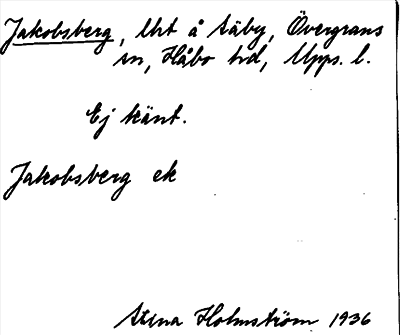 Jakobsberg, lht å Säby, Övergrans
sn, Håbo hd, Upps. l.
Ej känt.
Jakobsberg ek
Stina Holmström 1936